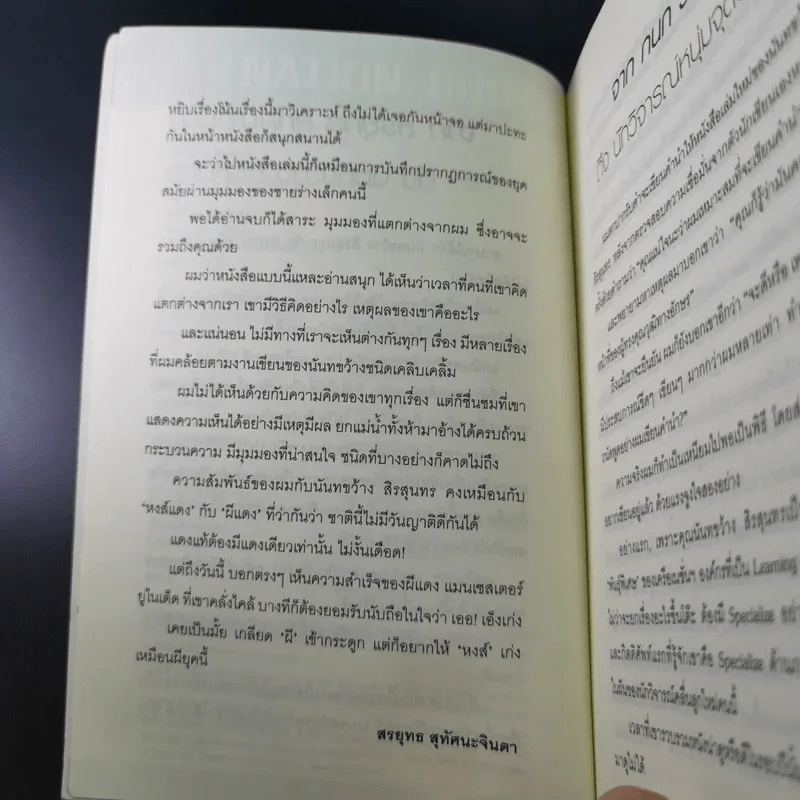 หยิบเรื่องโน้นเรื่องนี้มาวิเคราะห์ ถึงไม่ได้เจอกันหน้าจอ แต่มาปะทะ
กันในหน้าหนังสือก็สนุกสนานได้
จะว่าไปหนังสือเล่มนี้ก็เหมือนการบันทึกปรากฏการณ์ของยุค
สมัยผ่านมุมมองของชายร่างเล็กคนนี้
พอได้อ่านจบก็ได้สาระ มุมมองที่แตกต่างจากผม ซึ่งอาจจะ
รวมถึงคุณด้วย
ผมว่าหนังสือแบบนี้แหละอ่านสนุก ได้เห็นว่าเวลาที่คนที่เขาคิด
แตกต่างจากเรา เขามีวิธีคิดอย่างไร เหตุผลของเขาคืออะไร
และแน่นอน ไม่มีทางที่เราจะเห็นต่างกันทุกๆ เรื่อง มีหลายเรื่อง
ที่ผมคล้อยตามงานเขียนของนันทขว้างชนิดเคลิบเคลิ้ม
ผมไม่ได้เห็นด้วยกับความคิดของเขาทุกเรื่อง แต่ก็ชื่นชมที่เขา
แสดงความเห็นได้อย่างมีเหตุมีผล ยกแม่น้ำทั้งห้ามาอ้างได้ครบถ้วน
กระบวนความ มีมุมมองที่น่าสนใจ ชนิดที่บางอย่างก็คาดไม่ถึง
ความสัมพันธ์ของผมกับนันทขว้าง สิรสุนทร คงเหมือนกับ
‘หงส์แดง’ กับ ‘ผีแดง’ ที่ว่ากันว่า ชาตินี้ไม่มีวันญาติดีกันได้
แดงแท้ต้องมีแดงเดียวเท่านั้น ไม่งั้นเดือด!
แต่ถึงวันนี้ บอกตรงๆ เห็นความสำเร็จของผีแดง แมนเชสเตอร์
ยูไนเต็ด ที่เขาคลั่งไคล้ บางทีก็ต้องยอมรับนับถือในใจว่า เออ! เอ็งเก่ง
เคยเป็นมั้ย เกลียด ‘ผี’ เข้ากระดูก แต่ก็อยากให้ ‘หงส์’ เก่ง
เหมือนผียุคนี้
สรยุทธ สุทัศนะจินดา
จาก กนก
ถึง นักวิจารณ์หนุ่มจุด
หน้าที่ของผู้ทรงคุณวุฒิทางอักษร”
ถึงแม้เขาจะยืนยัน ผมก็ยังบอกเขาอีกว่า “จะดีหรือ
มีประสบการณ์ขีดๆ เขียนๆ มากกว่าผมหลายเท่า
ความจริงผมก็ทำเป็นเหนียมไปพอเป็นพิธี
อยากเขียนอยู่แล้ว ด้วยแรงจูงใจสองอย่าง
อย่างแรก, เพราะคุณนันทขว้าง สิรสุนทรเป็น
‘พันธุ์พิเศษ’ ของเครือเนชั่นฯ องค์กรที่เป็น Learning
ไม่ว่าจะยกเรื่องอะไรขึ้นโต๊ะ ต้องมี Specialize
และกิตติศัพท์แรกที่รู้จักเขาคือ Specialize
มาดูไม่ได้